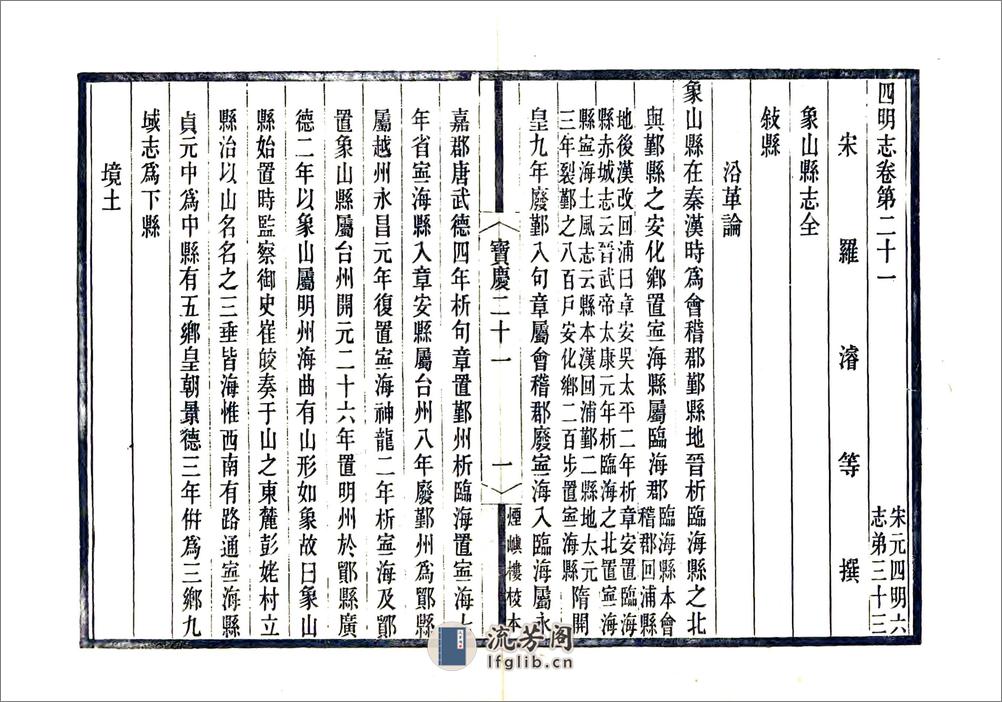 四明志卷第二十一
宋元四明六
志弟三十三
宋羅濬等撰
象山縣志全
敍縣
沿革論
象山縣在秦漢時爲會稽郡鄞縣地晉析臨海縣之北
與鄞縣之安化鄉置寧海縣屬臨海郡
臨海縣本會
稽郡回浦縣
地後漢改回浦曰章安吳太平二年析章安置臨海
縣赤城志云晉武帝太康元年析臨海之北置寧海
縣寧海土風志云縣本漢回浦鄞二縣地太元
三年裂鄞之八百戶安化鄉二百步置寧海縣
隋開
皇九年廢鄞入句章屬會稽郡廢寧海入臨海屬永
寶慶二十一
一
煙嶼樓校本
嘉郡唐武德四年析句章置鄞州析臨海置寧海七
年省寧海縣入章安縣屬台州八年廢鄞州爲鄮縣
屬越州永昌元年復置寧海神龍二年析寧海及鄮
置象山縣屬台州開元二十六年置明州於鄮縣廣
德二年以象山屬明州海曲有山形如象故曰象山
縣始置時監察御史崔皎奏于山之東麓彭姥村立
縣治以山名名之三垂皆海惟西南有路通寧海縣
貞元中爲中縣有五鄉皇朝景德三年併爲三鄉九
域志爲下縣
境土
流芳阁
lfglib.cn